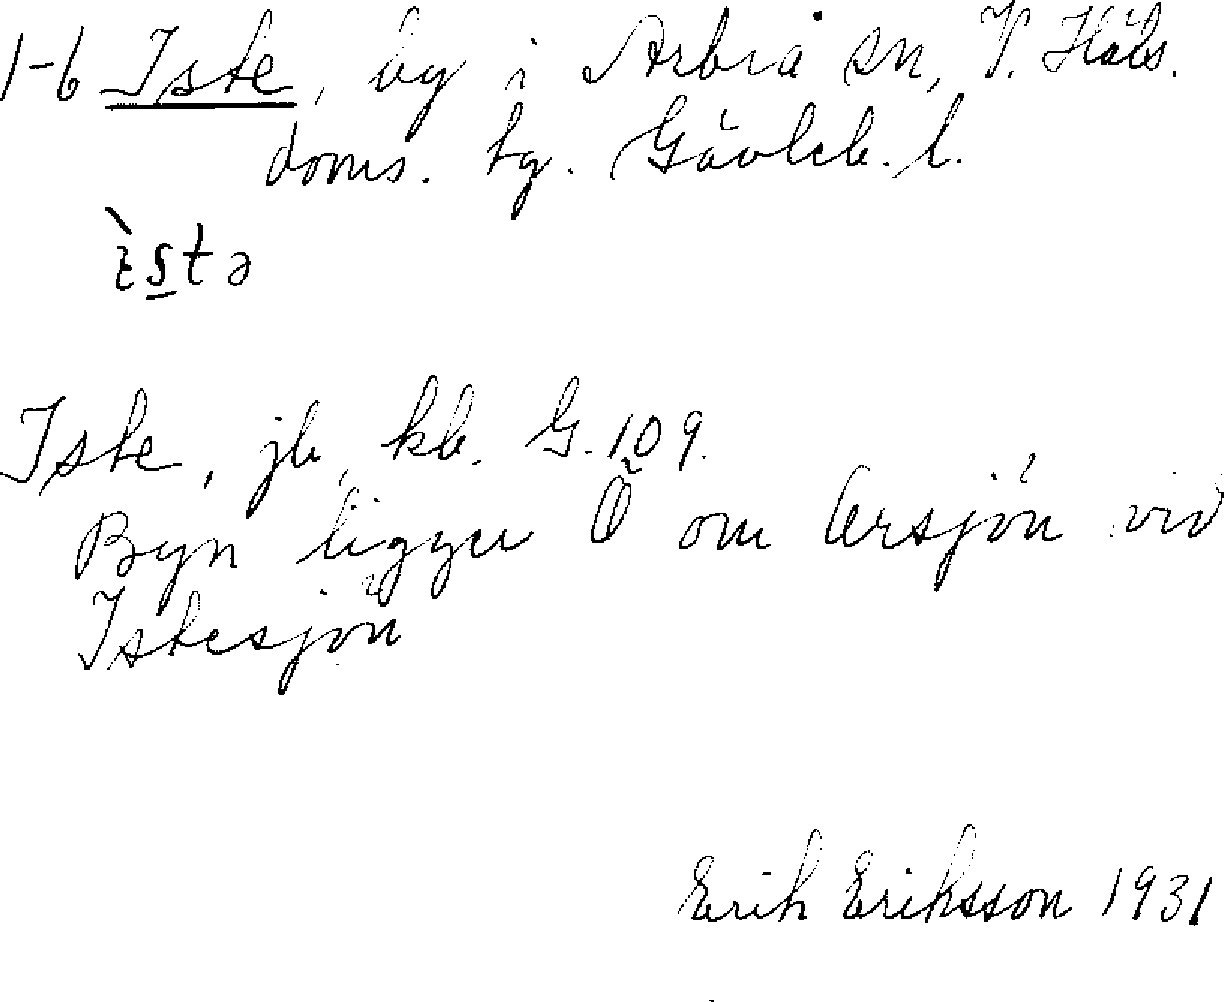 1-6 Iste, by i Arbrå sn, V. Häls.
doms. hg. Gävleb. l.
ɛ̀stə
Iste, jb, kb. G. 109.
Byn ligger Ö om Orsjön vid
Istesjön
Erik Eriksson 1931